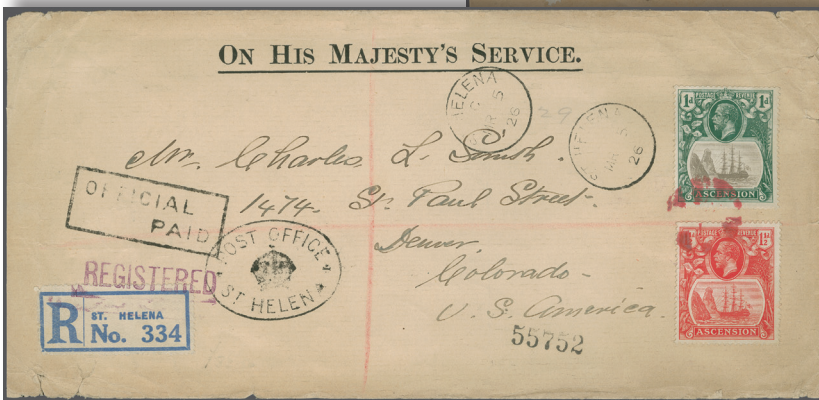 ON HIS MAJESTY'S SERVICE.
HELENA
C
MR 5
26
29
HELENA
C
MR 5
26
POSTAGE REVENUE
1d 1d
ASCENSION
Mr. Charles L.
1474. St. Paul Street.
Denver,
Colorado-
U.S. America.
OFFICIAL
PAID
POST OFFICE
ST HELENA
REGISTERED
R
ST. HELENA
No. 334
55752
POSTAGE REVENUE
1½d 1½d
ASCENSION